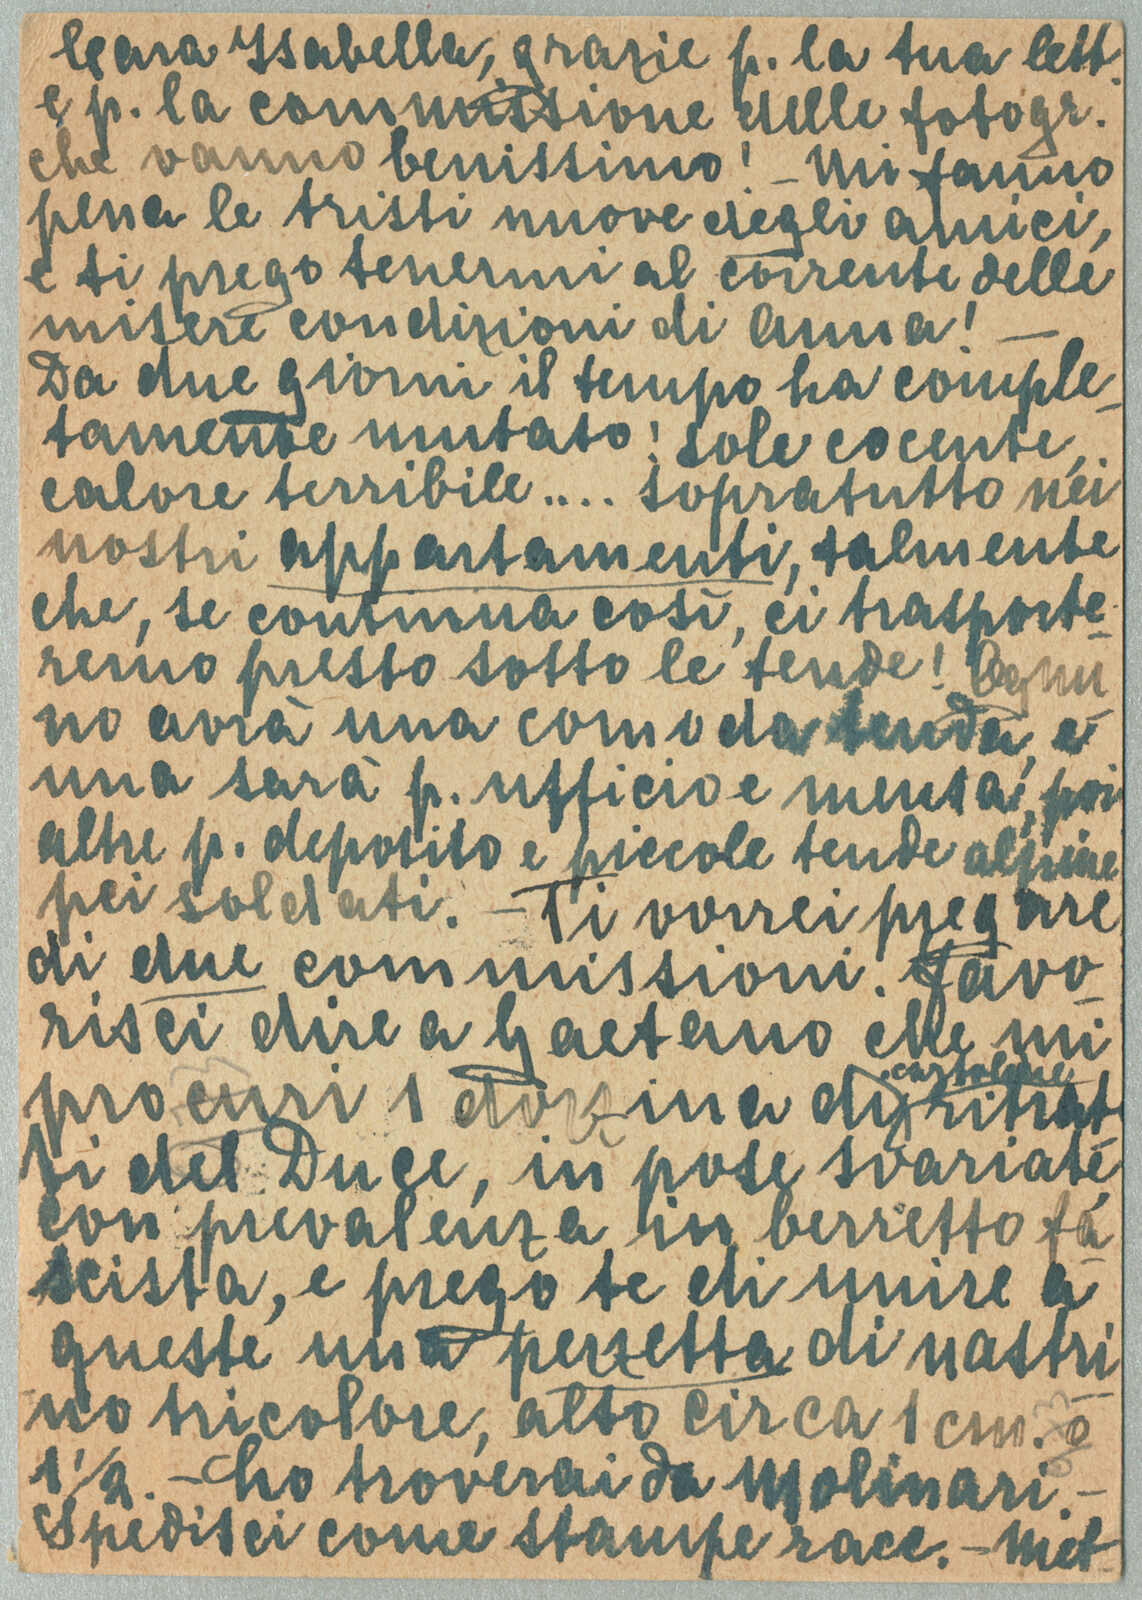 Cara Isabella, grazie p. la tua lett.
e p. la commissione delle fotogr.
che vanno benissimo! - Mi fanno
pena le tristi nuove degli amici,
e ti prego tenermi al corrente delle
misere condizioni di Anna! -
Da due giorni il tempo ha comple-
tamente mutato! sole cocente,
calore terribile.... sopratutto nei
nostri appartamenti, talmente
che, se continua così, ci trasporte-
remo presto sotto le tende! Ognu-
no avrà una comoda tenda, e
una sarà p. ufficio e mensa, poi
altre p. deposito e piccole tende alpine
pei soldati. - Ti vorrei pregare
di due commissioni. Favo-
risci dire a Gaetano che mi
procuri 1 dozzina di cartoline ritrat-
ti del Duce, in pose svariate,
con prevalenza in berretto fa-
scista, e prego te di unire a
queste una pezzetta di nastri-
no tricolore, alto circa 1 cm. o
1 1/2. - Lo troverai da Molinari. -
Spedisci come stampe racc. - Met-